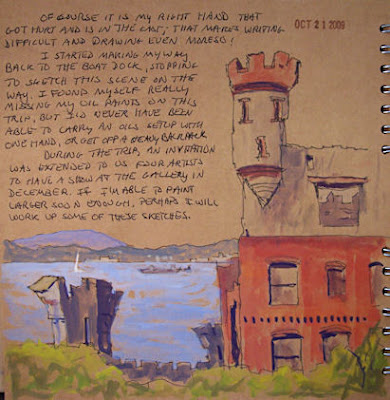 OF COURSE IT IS MY RIGHT HAND THAT
GOT HURT AND IS IN THE CAST; THAT MAKES WRITING
DIFFICULT AND DRAWING EVEN MORESO!
I STARTED MAKING MY WAY
BACK TO THE BOAT DOCK, STOPPING
TO SKETCH THIS SCENE ON THE
WAY. I FOUND MYSELF REALLY
MISSING MY OIL PAINTS ON THIS
TRIP, BUT I'D NEVER HAVE BEEN
ABLE TO CARRY AN OILS SETUP WITH
ONE HAND, OR GET OFF A HEAVY BACKPACK
DURING THE TRIP, AN INVITATION
WAS EXTENDED TO US FOUR ARTISTS
TO HAVE A SHOW AT THE GALLERY IN
DECEMBER. IF I'M ABLE TO PAINT
LARGER SOON ENOUGH, PERHAPS I WILL
WORK UP SOME OF THESE SKETCHES.
OCT 21 2009